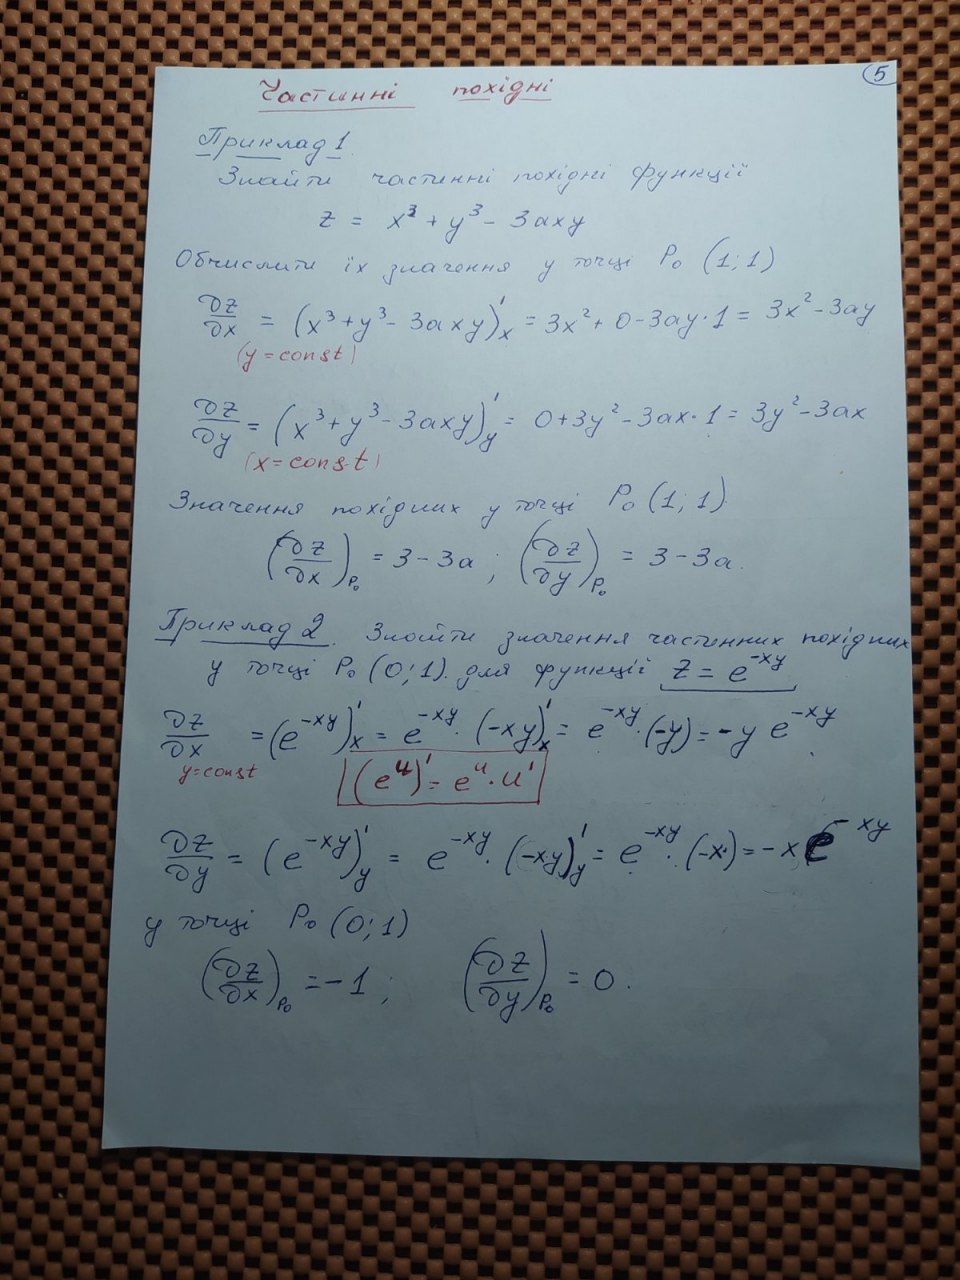 5
Частинні похідні
Приклад 1.
Знайти частинні похідні функції
z = x³ + y³ - 3axy
Обчислити їх значення у точці P₀ (1; 1)
∂z/∂x = (x³ + y³ - 3axy)'ₓ = 3x² + 0 - 3ay · 1 = 3x² - 3ay
(y = const)
∂z/∂y = (x³ + y³ - 3axy)'ᵧ = 0 + 3y² - 3ax · 1 = 3y² - 3ax
(x = const)
Значення похідних у точці P₀ (1; 1)
(∂z/∂x)P₀ = 3 - 3a ; (∂z/∂y)P₀ = 3 - 3a.
Приклад 2. Знайти значення частинних похідних
у точці P₀ (0; 1). для функції z = e^(-xy)
∂z/∂x = (e^(-xy))'ₓ = e^(-xy) · (-xy)'ₓ = e^(-xy) · (-y) = -y e^(-xy).
y = const (e^u)' = e^u · u'
∂z/∂y = (e^(-xy))'ᵧ = e^(-xy) · (-xy)'ᵧ = e^(-xy) · (-x) = -x e^(-xy)
у точці P₀ (0; 1)
(∂z/∂x)P₀ = -1 ; (∂z/∂y)P₀ = 0.